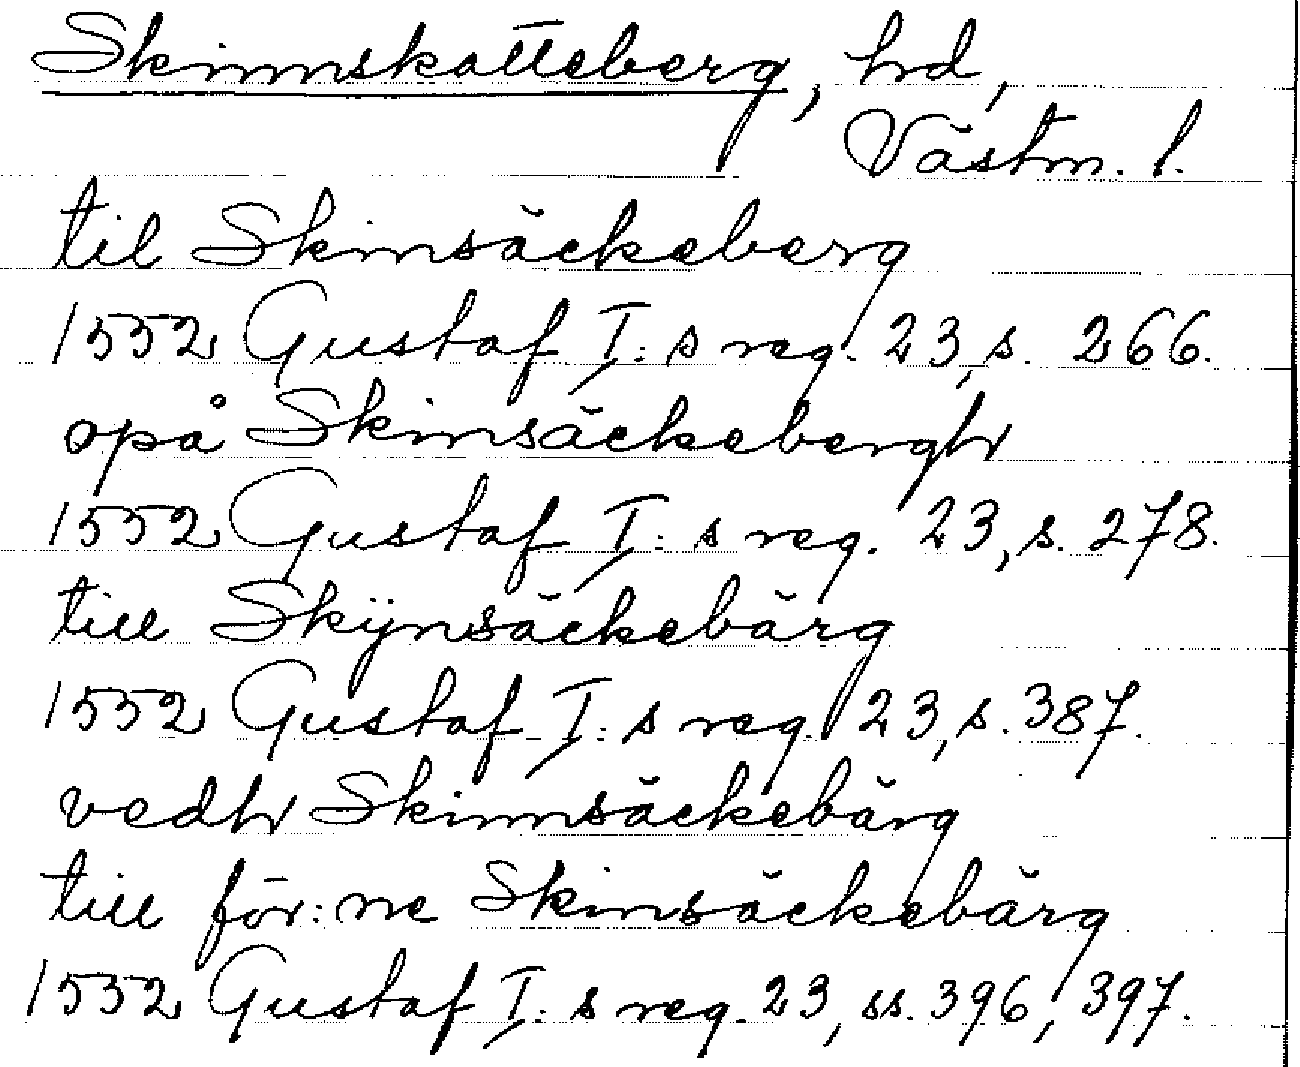 Skinnskatteberg, hd,
Västm. l.
til Skinsäckeberg
1552 Gustaf I:s reg. 23, s. 266.
opå Skinsäckebergh
1552 Gustaf I:s reg. 23, s. 278.
till Skÿnsäckebärg
1552 Gustaf I:s reg. 23, s. 387.
vedh Skinnsäckebärg
till för:ne Skinsäckebärg
1552 Gustaf I:s reg. 23, ss. 396, 397.